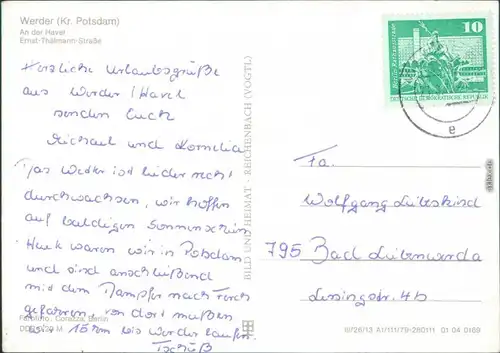 Werder (Kr. Potsdam)
An der Havel
Ernst-Thälmann-Straße
Herzliche Urlaubsgrüße
aus Werder/Havel
senden Euch
Michael und Kornelia
Das Wetter ist leider recht
durchwachsen, wir hoffen
auf baldigen Sonnenschein
Heute waren wir in Potsdam
und sind anschließend
mit dem Dampfer nach
gefahren, von dort mußten
wir 15 km bis Werder laufen.
Tschüß
Farbfoto: Corazza, Berlin
BILD UND HEIMAT · REICHENBACH (VOGTL.)
10
DEUTSCHE DEMOKRATISCHE REPUBLIK
e
Fa.
Wolfgang Liebeskind
795 Bad Liebenwerda
Lessingstr. 4b
A1/111/79-280111 01 04 0169